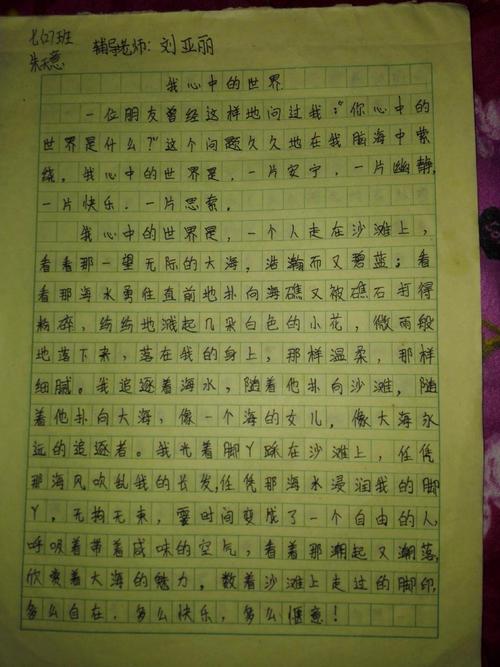 七(7)班
朱天意
辅导老师：刘亚丽
我心中的世界
一位朋友曾经这样地问过我："你心中的
世界是什么?"这个问题久久地在我脑海中萦
绕。我心中的世界是，一片安宁，一片幽静，
一片快乐，一片思索。
我心中的世界是，一个人走在沙滩上，
看看那一望无际的大海，浩瀚而又碧蓝；看
看那海水勇往直前地扑向海礁又被礁石打得
粉碎，纷纷地溅起几朵白色的小花，微雨般
地落下来，落在我的身上，那样温柔，那样
细腻。我追逐着海水，随着他扑向沙滩，随
着他扑向大海，像一个海的女儿，像大海永
远的追逐者。我光着脚丫踩在沙滩上，任凭
那海风吹乱我的长发，任凭那海水浸润我的脚
丫，无拘无束，霎时间变成了一个自由的人，
呼吸着带着咸味的空气，看着那潮起又潮落，
欣赏着大海的魅力，数着沙滩上走过的脚印，
多么自在，多么快乐，多么惬意！